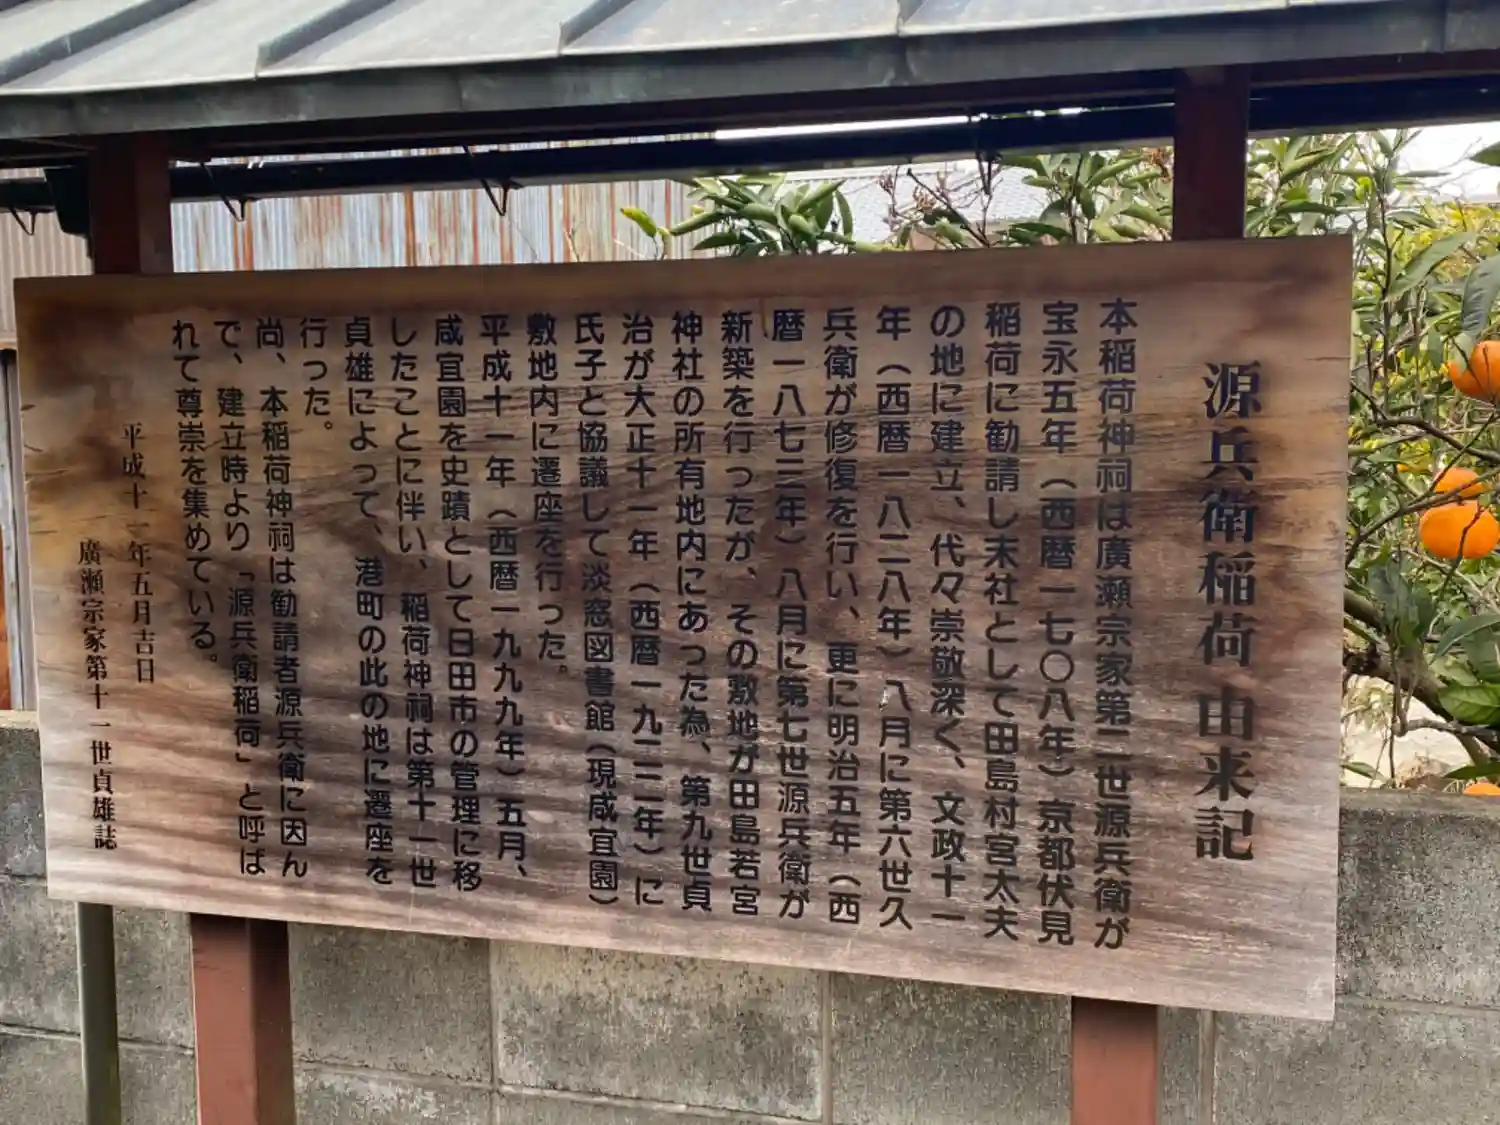 源兵衛稲荷由来記
本稲荷神祠は廣瀬宗家第二世源兵衛が
宝永五年（西暦一七〇八年）京都伏見
稲荷に勧請し末社として田島村宮太夫
の地に建立、代々崇敬深く、文政十一
年（西暦一八二八年）八月に第六世久
兵衛が修復を行い、更に明治五年（西
暦一八七三年）八月に第七世源兵衛が
新築を行ったが、その敷地が田島若宮
神社の所有地内にあった為、第九世貞
治が大正十一年（西暦一九二二年）に
氏子と協議して淡窓図書館（現咸宜園）
敷地内に遷座を行った。
平成十一年（西暦一九九九年）五月、
咸宜園を史蹟として日田市の管理に移
したことに伴い、稲荷神祠は第十一世
貞雄によって、港町の此の地に遷座を
行った。
尚、本稲荷神祠は勧請者源兵衛に因ん
で、建立時より「源兵衛稲荷」と呼ば
れて尊崇を集めている。
平成十一年五月吉日
廣瀬宗家第十一世貞雄誌